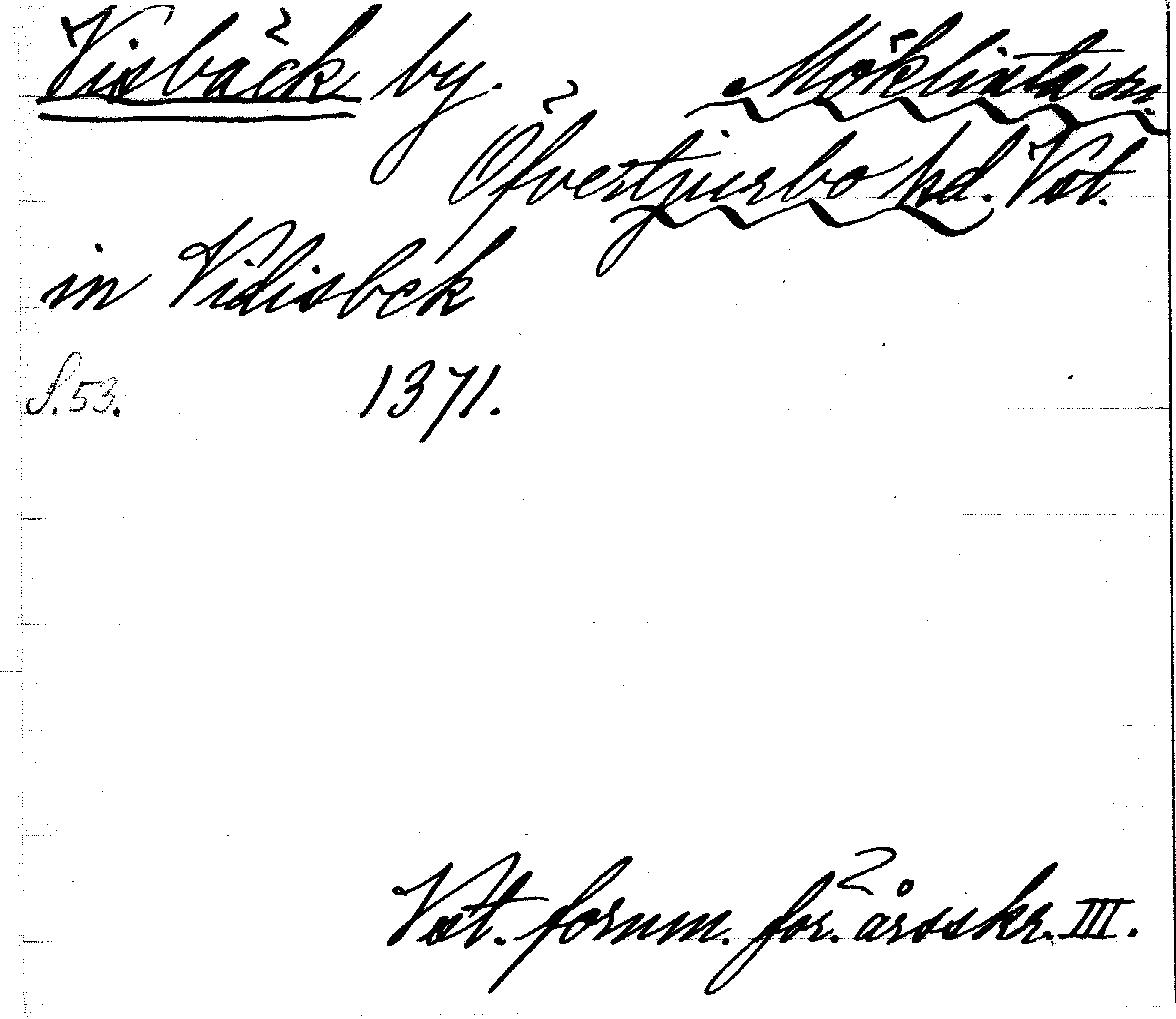 Visbäck by. Möklinta sn.
Öfvertjurbo hd. Vst.
in Vidisbek
S. 53. 1371.
Vst. fornm. för. årsskr. III.